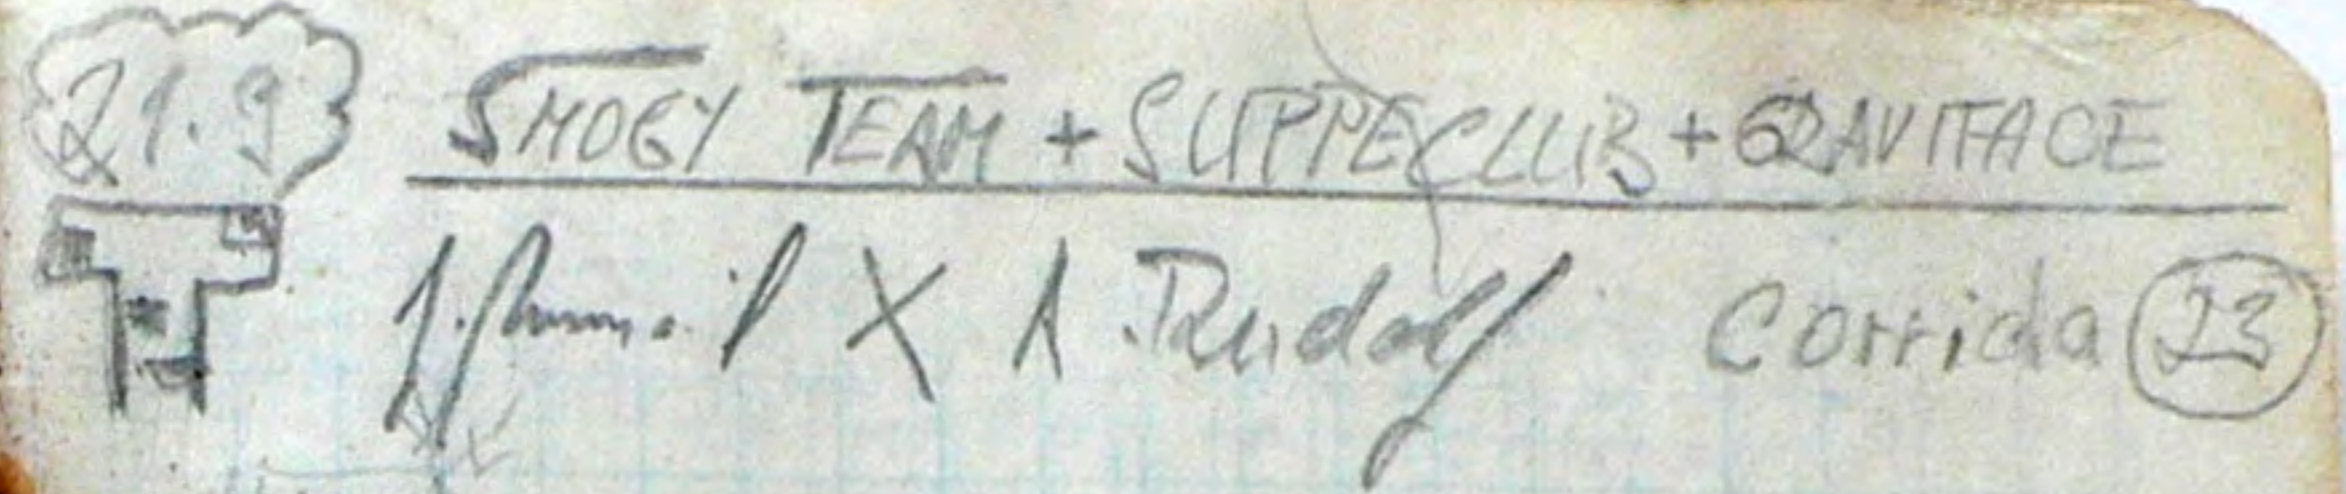 21.9
SMOGY TEAM + SUPPECLUB + GRAVITACE
J. X A. Rudolf Corrida 23